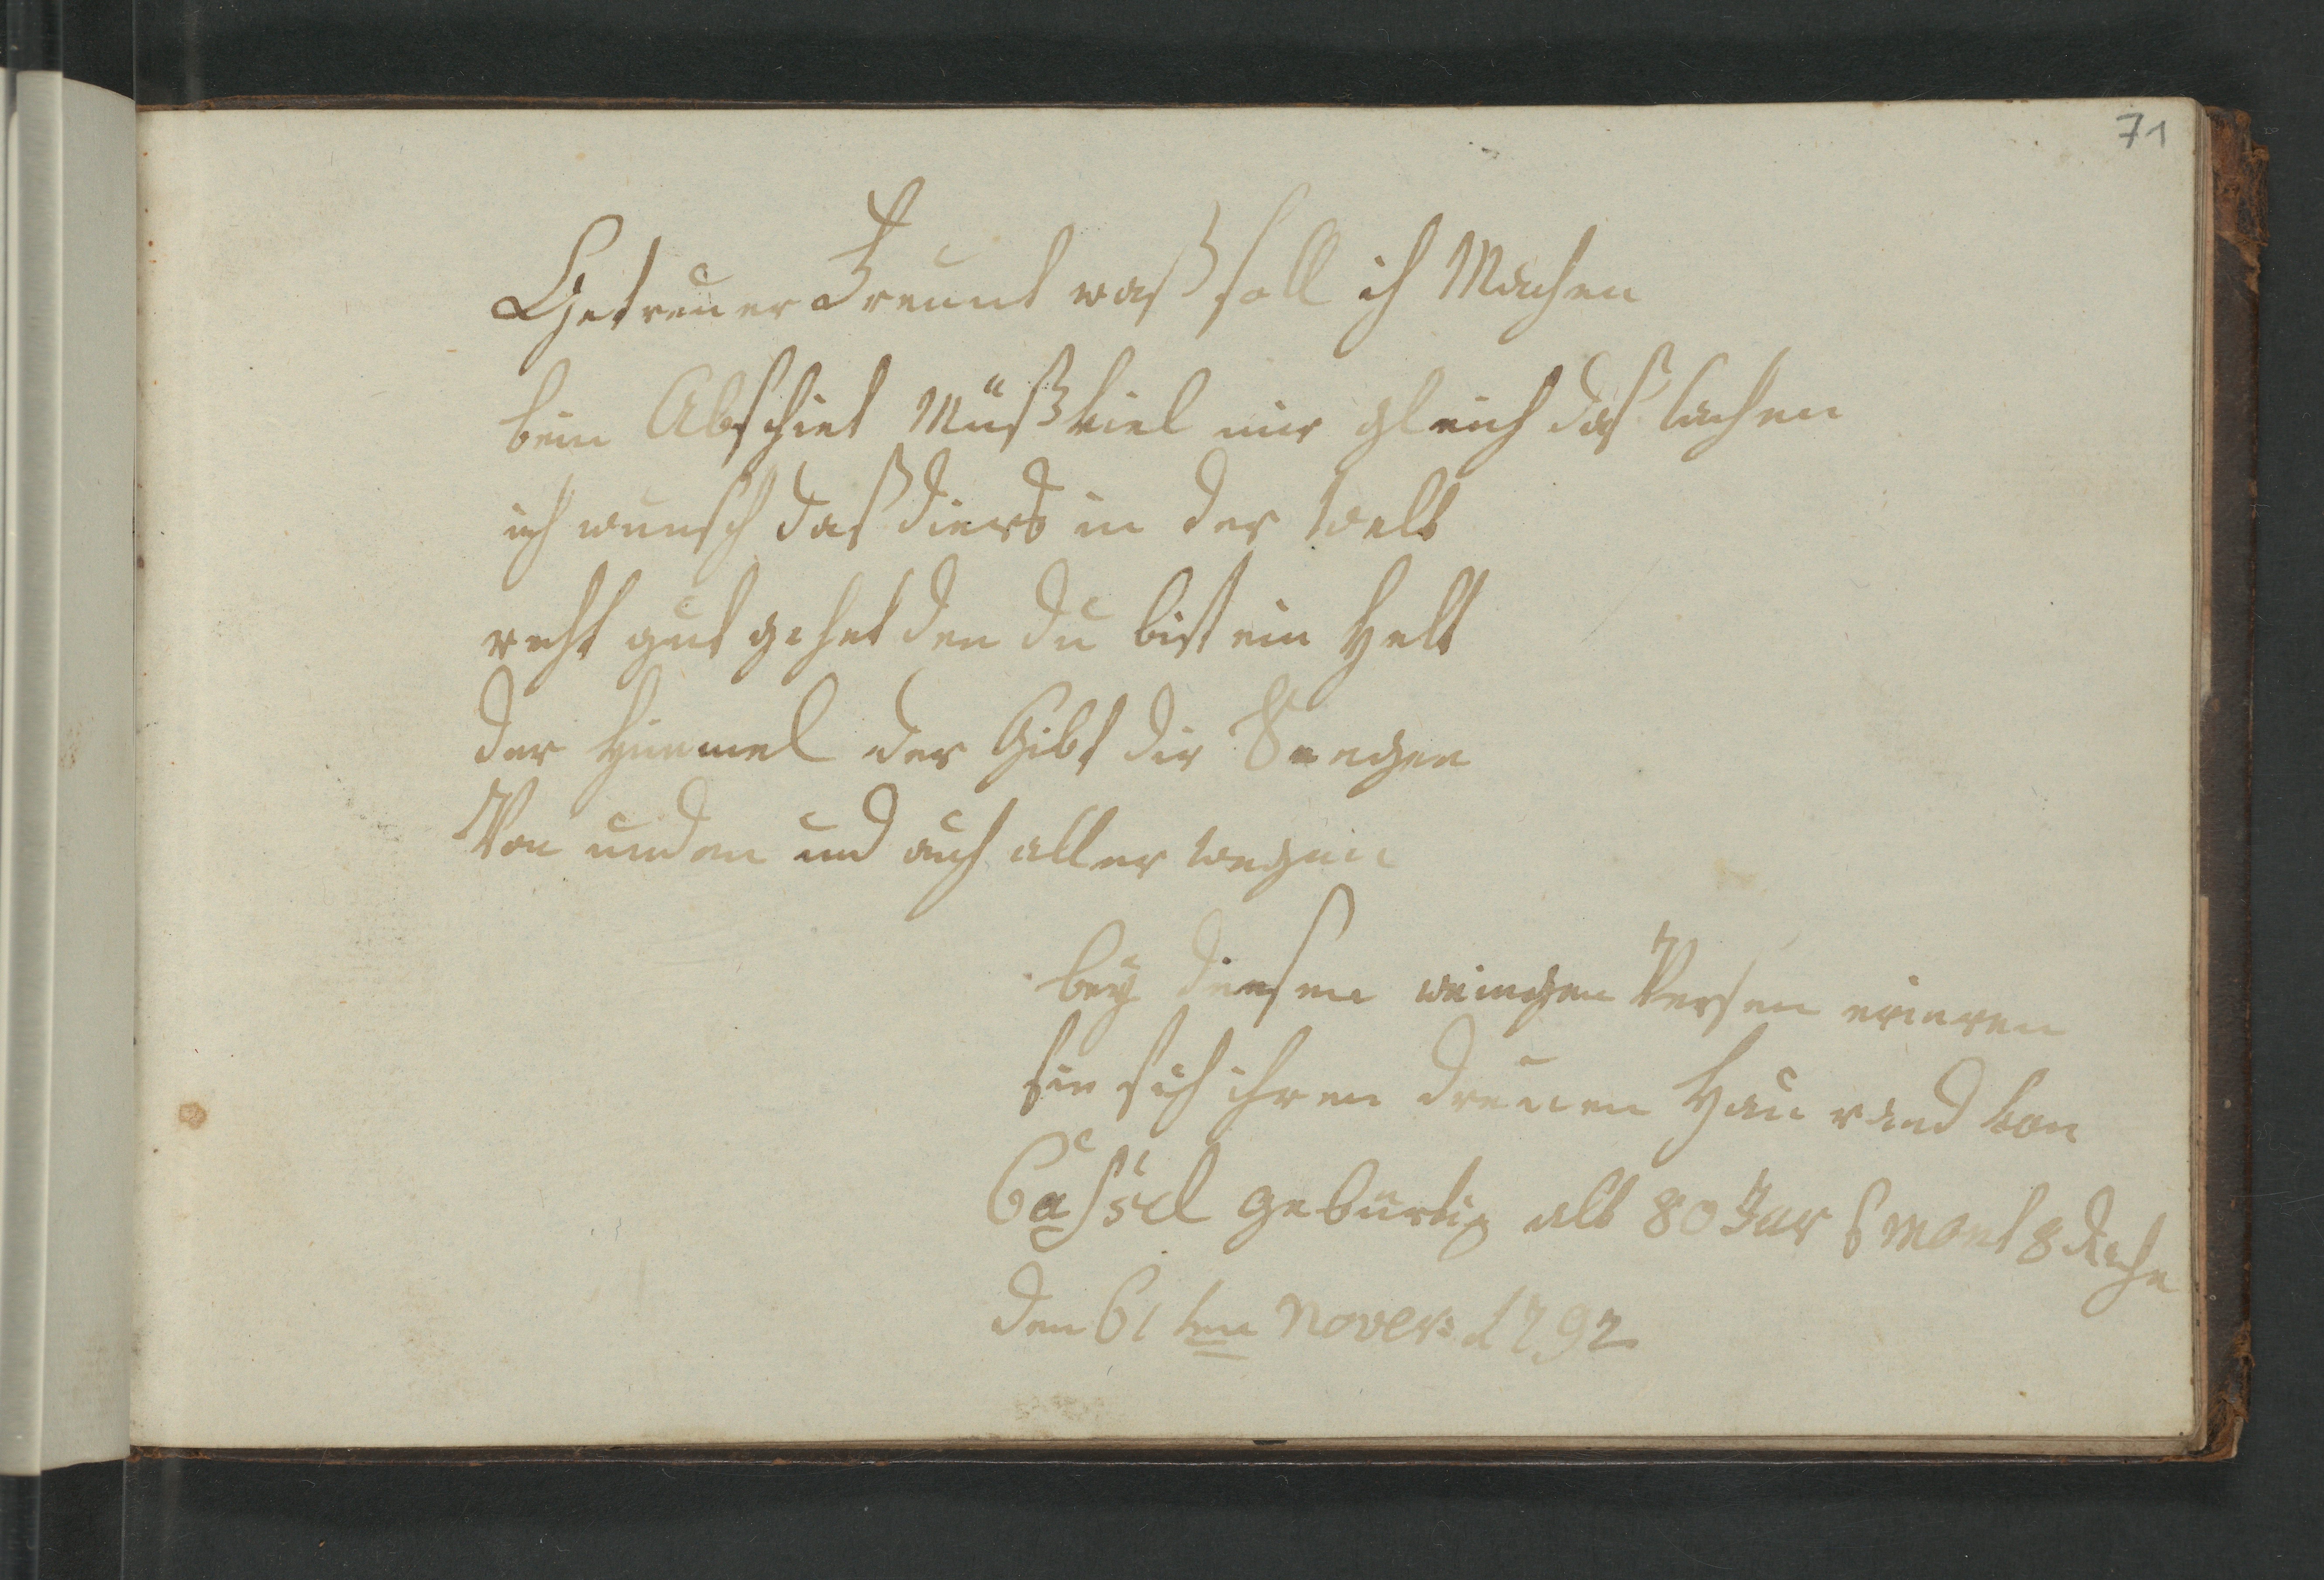 71
Getreuer Freunt waß soll ich Machen
beim Abschiet Müß viel mir gleich daß lachen
ich wunsch daß diers in der Welt
recht gut gehet den du bist ein Helt
der Himmel der Gibt dir Seegen
Von unden und auch aller wegen
bey diesen weingen Versen erineren
sie sich ihren dreuen von
Cassel gebürtig alt 80 Jar mont 8 dache
den 61ten Nover: 1792